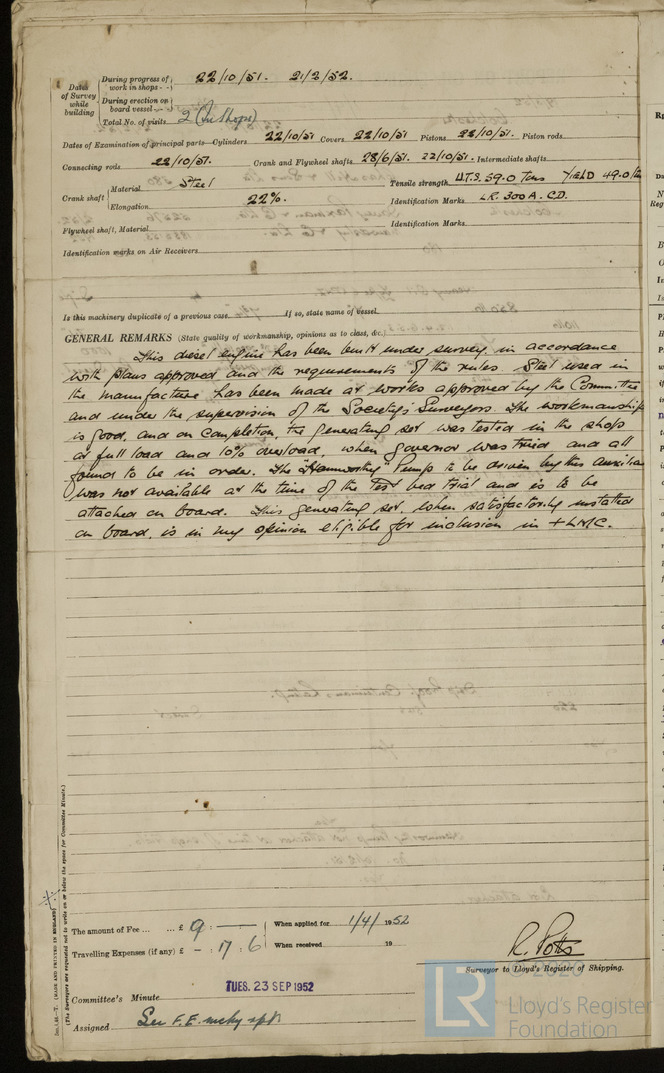 Dates of Survey while building
During progress of work in shops - - 22/10/51. 21/2/52.
During erection on board vessel - - -
Total No. of visits 2 (In Shops)
Dates of Examination of principal parts—Cylinders 22/10/51 Covers 22/10/51 Pistons 22/10/51. Piston rods
Connecting rods 22/10/51. Crank and Flywheel shafts 28/6/51. 22/10/51. Intermediate shafts
Crank shaft Material Steel Tensile strength U.T.S. 59.0 Tons YIELD 49.0
Elongation 22%. Identification Marks LR. 300 A. C.D.
Flywheel shaft, Material Identification Marks
Identification marks on Air Receivers
Is this machinery duplicate of a previous case. If so, state name of vessel.
GENERAL REMARKS (State quality of workmanship, opinions as to class, &c.)
This diesel engine has been built under survey, in accordance
with plans approved and the requirements of the rules. Steel used in
the manufacture has been made at works approved by the Committee
and under the supervision of the Society's Surveyors. The workmanship
is good, and on completion, the generating set was tested in the shops
at full load and 10% overload, when governor was tried and all
found to be in order. The "Hamworthy" Pump to be driven by this
was not available at the time of the Test bed trial and is to be
attached on board. This generating set, when satisfactorily installed
on board, is in my opinion eligible for inclusion in +LMC.
(The Surveyors are requested not to write on or below the space for Committee Minute.)
(MADE AND PRINTED IN ENGLAND)
The amount of Fee ... ... £ 9 : — When applied for 1/4/ 1952
Travelling Expenses (if any) £ - : 17 : 6 When received 19
R. Potts
Surveyor to Lloyd's Register of Shipping.
Committee's Minute TUES. 23 SEP 1952
Assigned See F.E. mchy rpt
© 2020
LR
Lloyd's Register
Foundation